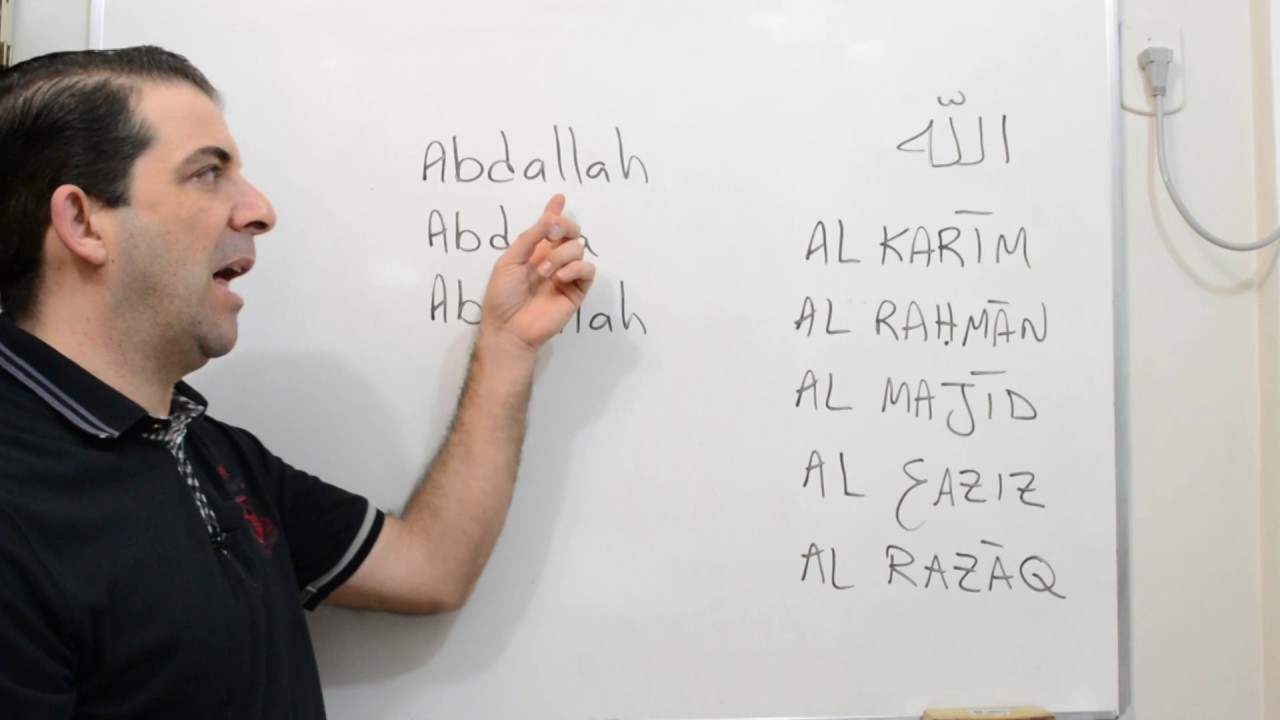 Abdallah
اللّه
AL KARĪM
AL RAḤMĀN
AL MAJĪD
AL عAZIZ
AL RAZĀQ